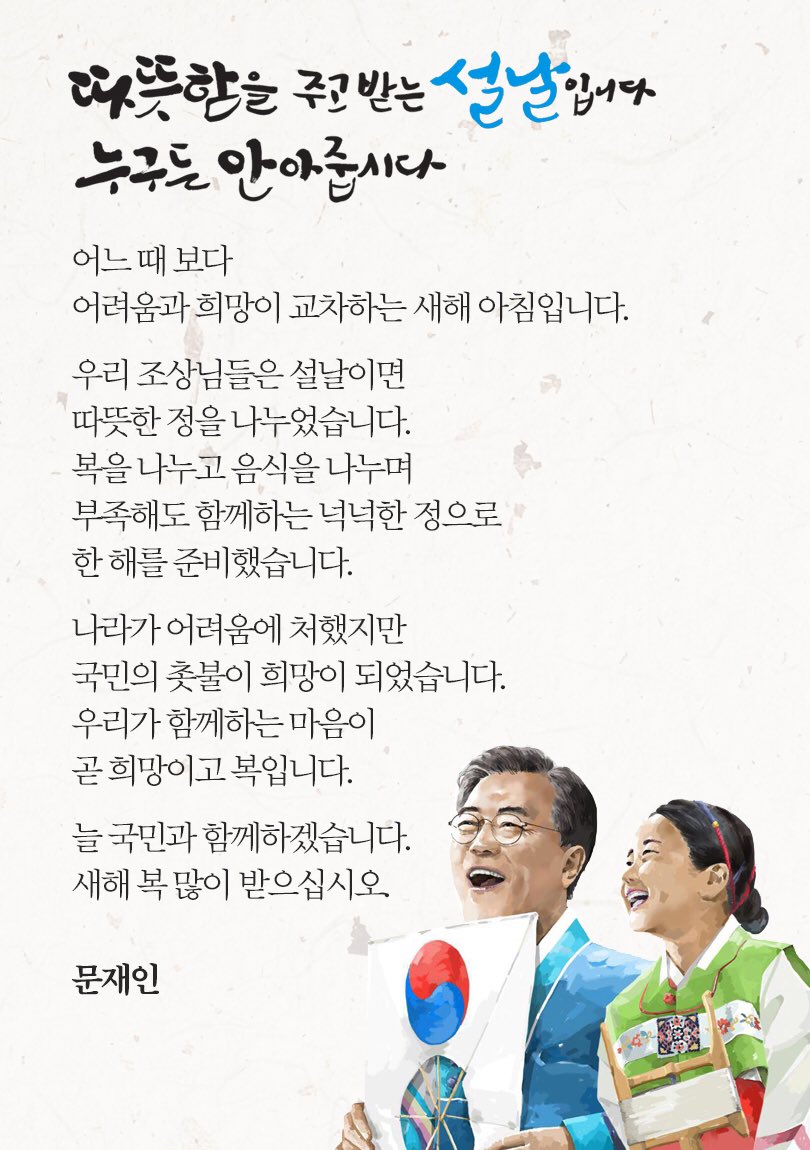 따뜻함을 주고 받는 설날입니다
누구든 안아줍시다
어느 때 보다
어려움과 희망이 교차하는 새해 아침입니다.
우리 조상님들은 설날이면
따뜻한 정을 나누었습니다.
복을 나누고 음식을 나누며
부족해도 함께하는 넉넉한 정으로
한 해를 준비했습니다.
나라가 어려움에 처했지만
국민의 촛불이 희망이 되었습니다.
우리가 함께하는 마음이
곧 희망이고 복입니다.
늘 국민과 함께하겠습니다.
새해 복 많이 받으십시오.
문재인